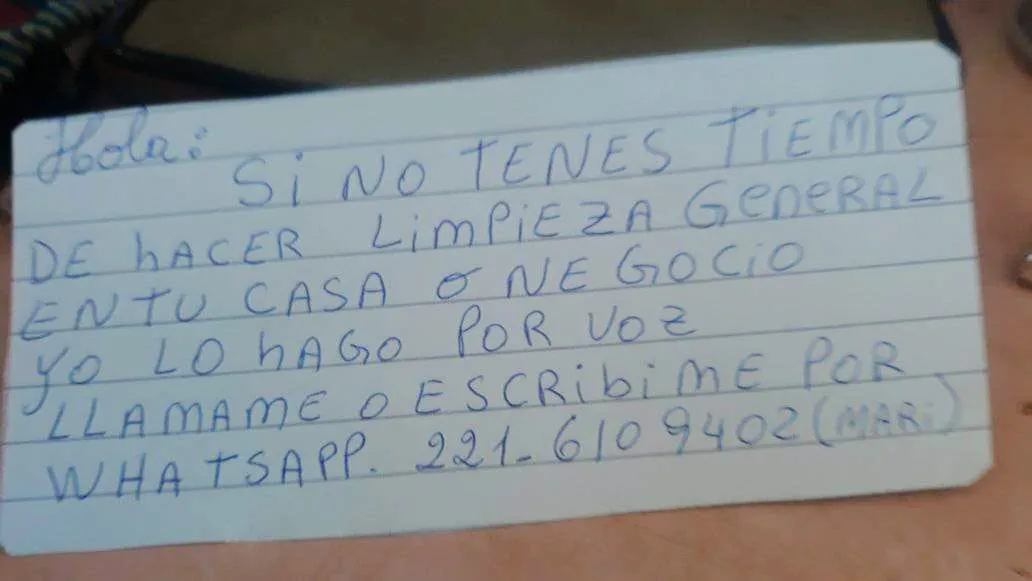 Hola:
Si NO TENES TiEMPO
DE hACER LiMPiEZA GeneRAL
EN TU CASA o NEGOCiO
yo LO hAGO POR VOZ
LLAMAME O ESCRibiME POR
WHATSAPP. 221-6109402 (MARi)